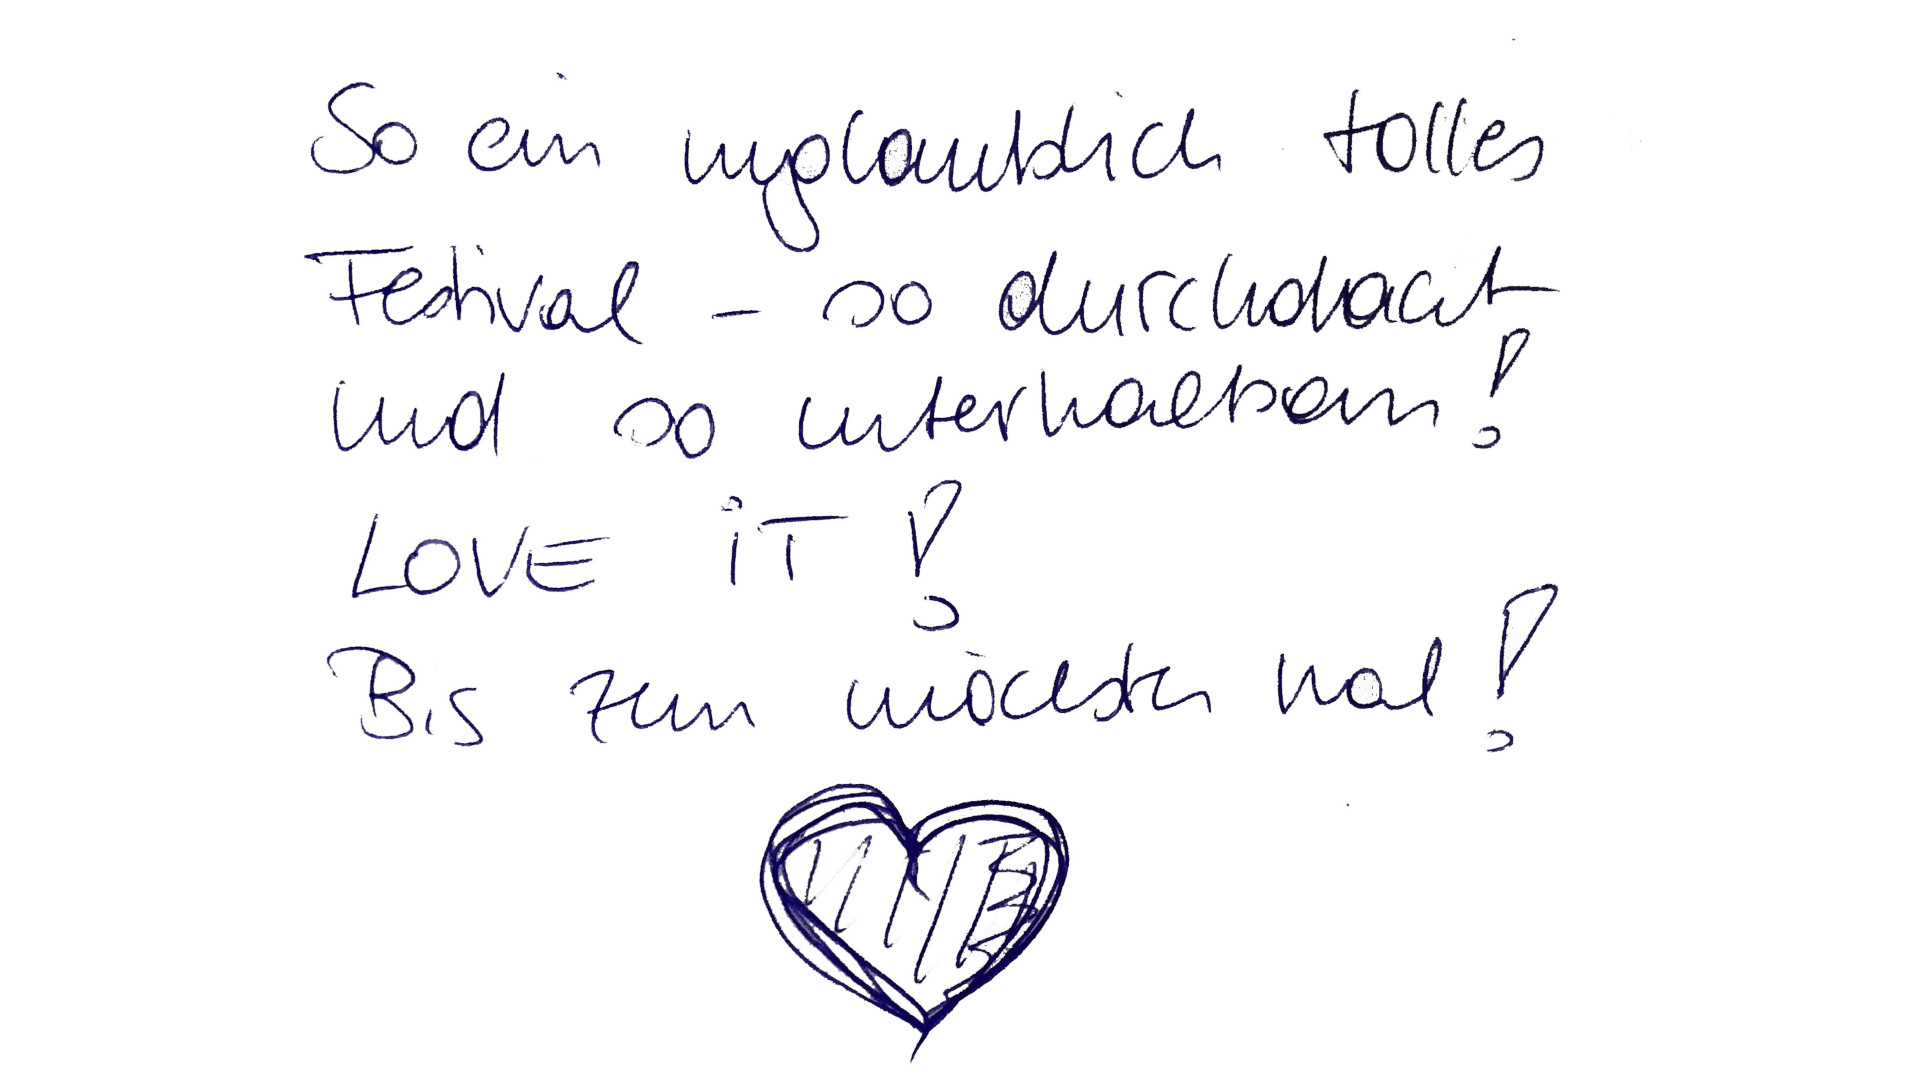 So ein unglaublich tolles
Festival - so durchdacht
und so unterhaltsam!
LOVE iT!
Bis zum nächsten mal!